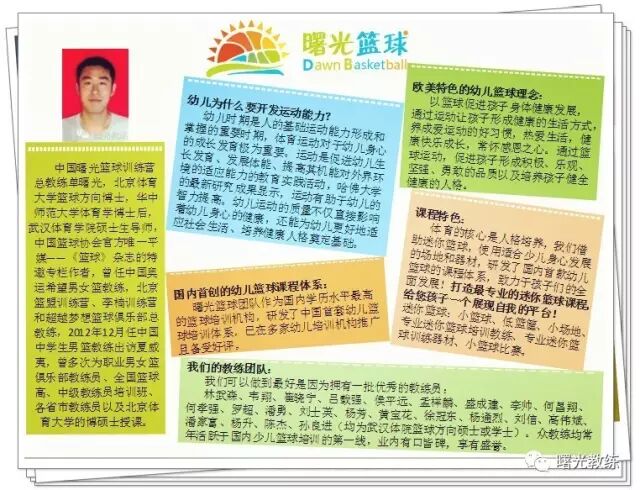 曙光篮球
Dawn Basketball
中国曙光篮球训练营
总教练单曙光，北京体育
大学篮球方向博士，华中
师范大学体育学博士后，
武汉体育学院硕士生导师，
中国篮球协会官方唯一平
媒——《篮球》杂志的特
邀专栏作者，曾任中国奥
运希望男女篮教练，北京
篮盟训练营、李楠训练营
和超越梦想篮球俱乐部总
教练，2012年12月任中国
中学生男篮教练出访夏威
夷，曾多次为职业男女篮
俱乐部教练员、全国篮球
高、中级教练员培训班、
各省市教练员以及北京体
育大学的博硕士授课。
幼儿为什么要开发运动能力？
幼儿时期是人的基础运动能力形成和
掌握的重要时期，体育运动对于幼儿身心
的成长发育极为重要。运动是促进幼儿生
长发育、发展体能、提高其机能对外界环
境的适应能力的教育实践活动，哈佛大学
的最新研究成果显示，运动有助于幼儿的
智力提高。幼儿运动的质量不仅直接影响
着幼儿身心的健康，还能为幼儿更好地适
应社会生活、培养健康人格奠定基础。
欧美特色的幼儿篮球理念：
以篮球促进孩子身体健康发展，
通过运动让孩子形成健康的生活方式，
养成爱运动的好习惯，热爱生活，健
康快乐成长，常怀感恩之心。通过篮
球运动，促进孩子形成积极、乐观、
坚强、勇敢的品质以及培养孩子健全
健康的人格。
课程特色：
体育的核心是人格培养，我们借
助迷你篮球，使用适合少儿身心发展
的场地和器材，研发了国内首套幼儿
篮球的课程体系，致力于孩子们的全
面发展！打造最专业的迷你篮球课程，
给您孩子一个展现自我的平台！
迷你篮球、小篮球、低篮筐、小场地、
专业迷你篮球培训教练、专业迷你篮
球训练器材、小篮球比赛。
国内首创的幼儿篮球课程体系：
曙光篮球团队作为国内学历水平最高
的篮球培训机构，研发了中国首套幼儿篮
球培训体系，已在多家幼儿培训机构推广
且备受好评。
我们的教练团队：
我们可以做到最好是因为拥有一批优秀的教练员：
林武森、韦翔、崔晓宁、吕数强、侯平远、孟祥麟、盛成建、李帅、何昌翔、
何孝强、罗超、潘勇、刘士英、杨芳、黄宝花、徐冠东、杨通烈、刘信、高伟斌、
潘家富、杨升、陈杰、孙良进（均为武汉体院篮球方向硕士或学士）。众教练均常
年活跃于国内少儿篮球培训的第一线，业内有口皆碑，享有盛誉。
曙光教练